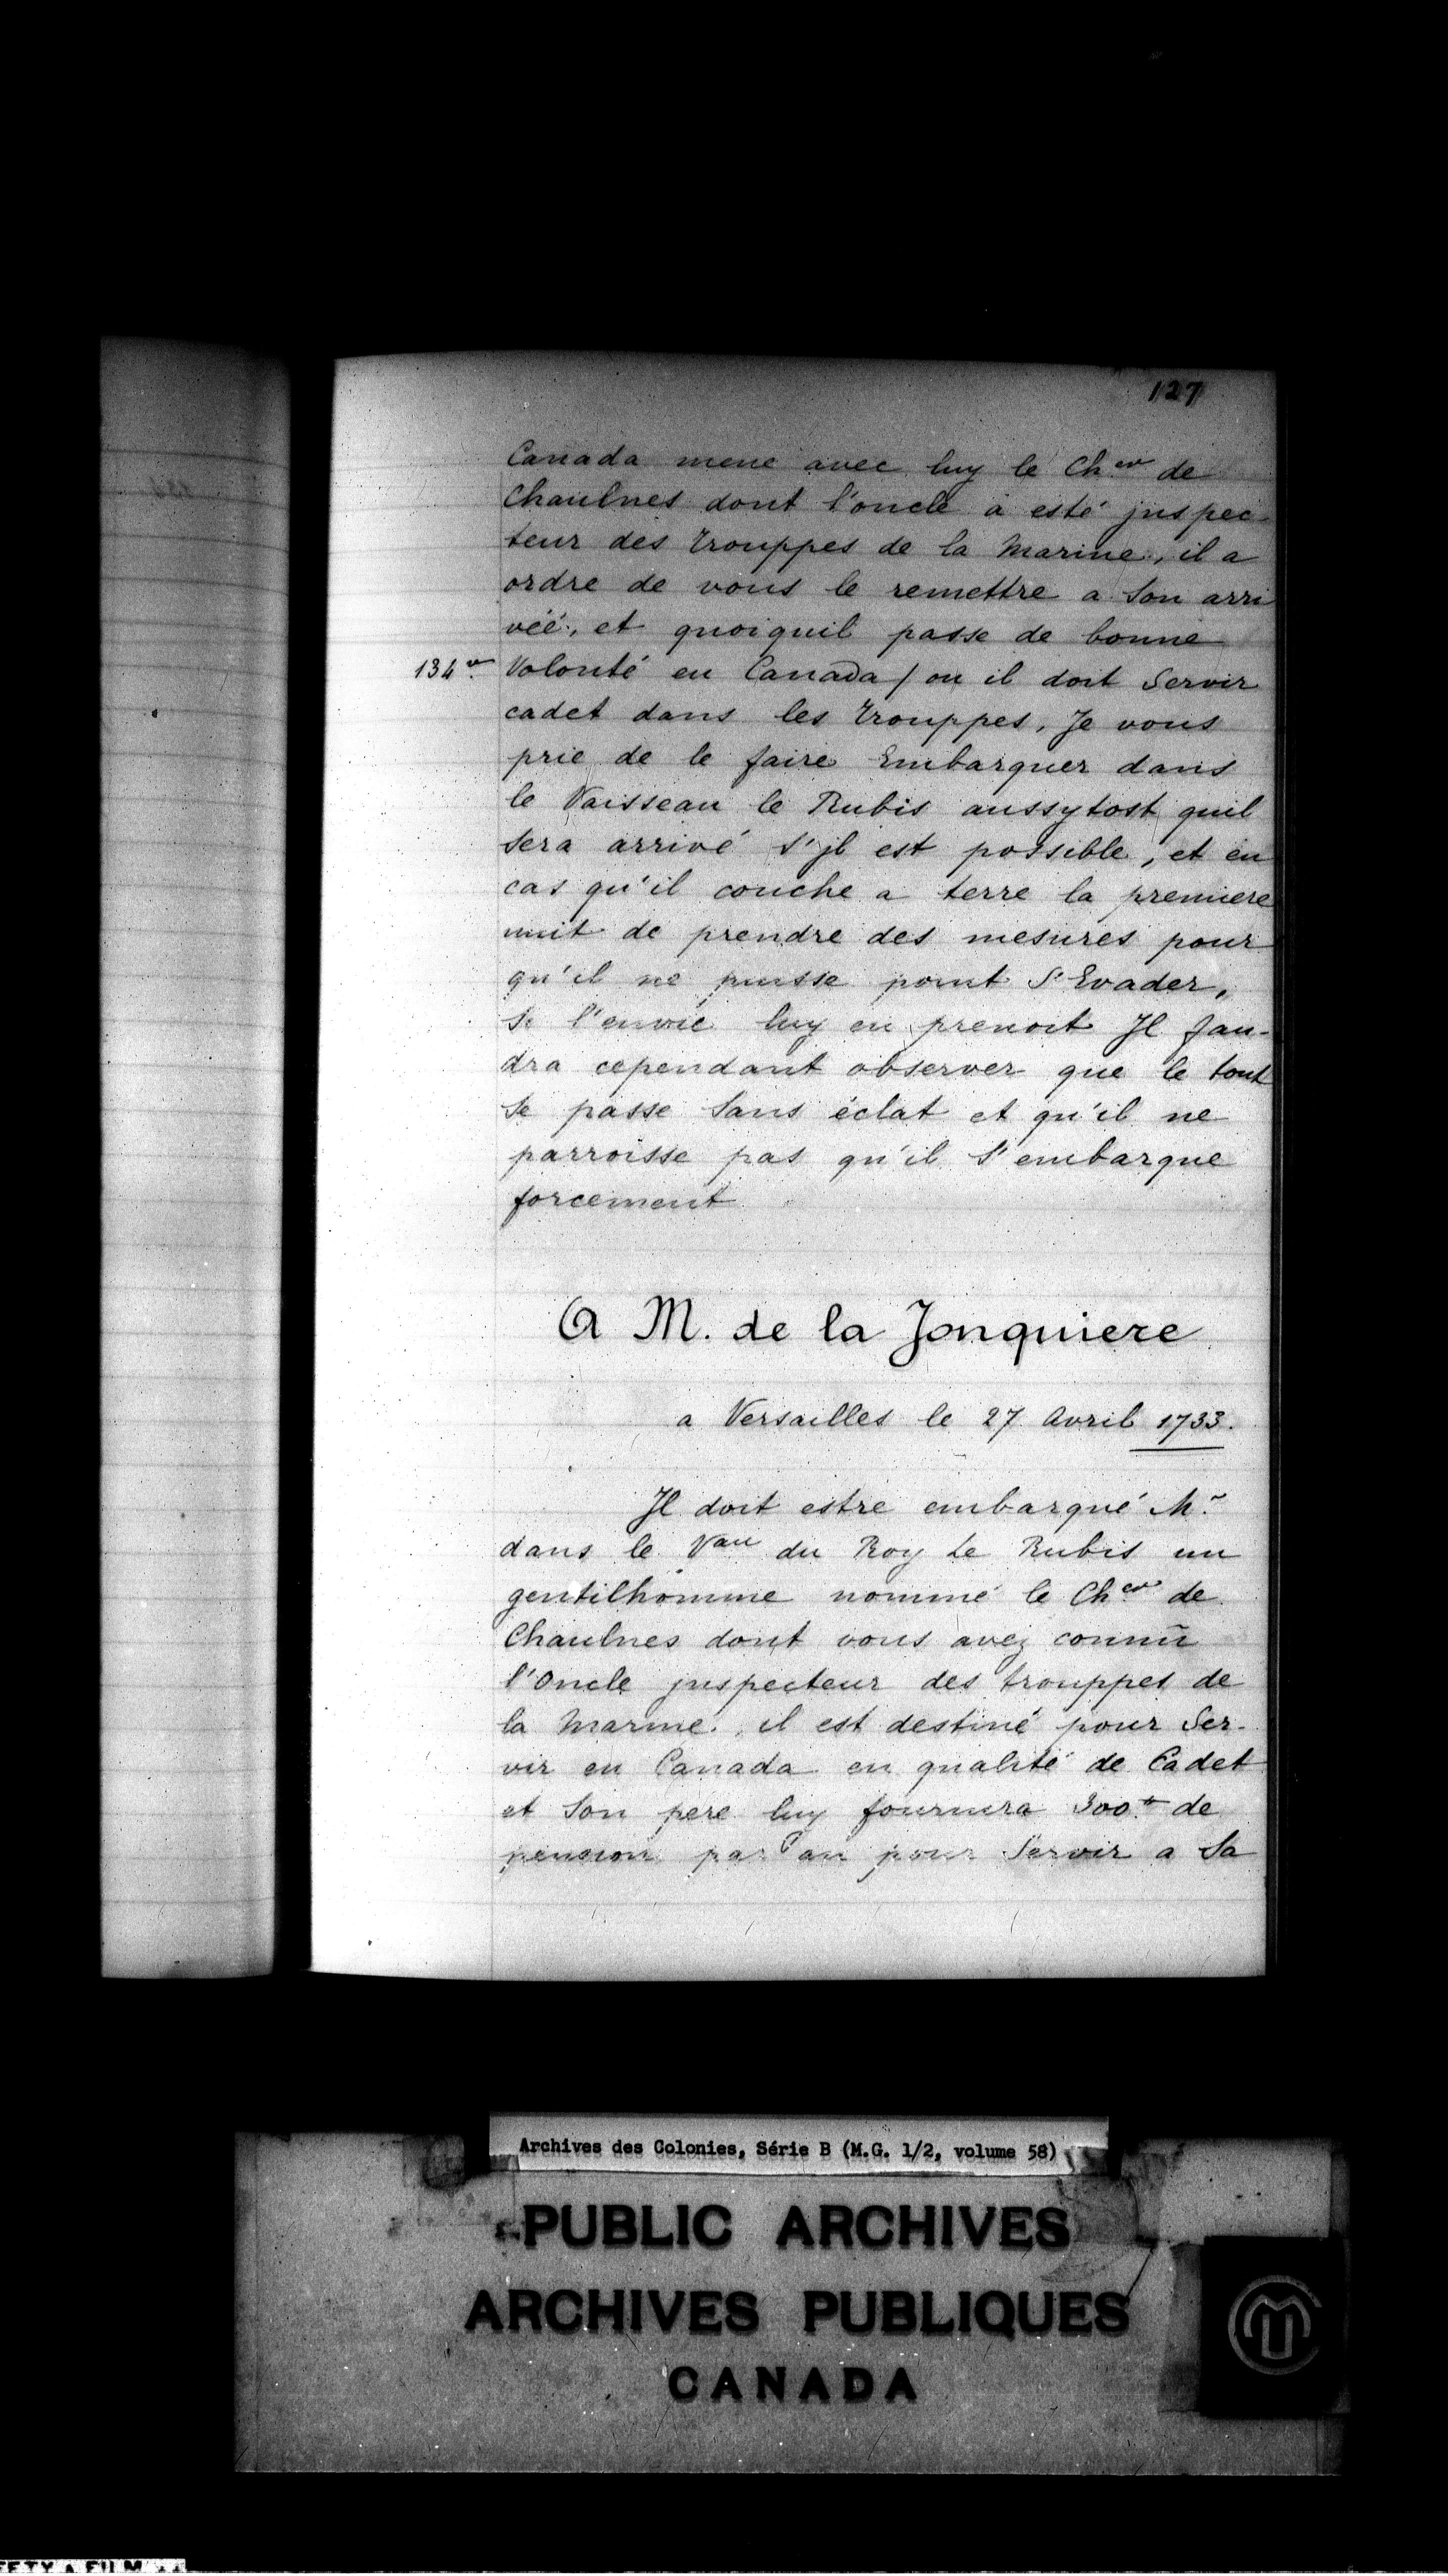 127
Canada mene avec luy le Ch.er de
Chaulnes dont l'oncle a esté jnspec-
teur des trouppes de la Marine, il a
ordre de vous le remettre a son arri
véé, et quoiquil passe de bonne
134 v.
Volonté en Canada / ou il doit Servir
cadet dans les trouppes, Je vous
prie de le faire Embarquer dans
le Vaisseau le Rubis aussytost quil
sera arrivé s'jl est possible, et en
cas qu'il couche a terre la premiere
nuit de prendre des mesures pour
qu'il ne puisse point S'Evader,
si l'envie luy en prenoit Jl fau-
dra cependant observer que le tout
se passe sans éclat et qu'il ne
parroisse pas qu'il s'embarque
forcement
A M. de la Jonquiere
a Versailles le 27 Avril 1733.
Jl doit estre embarqué Mr.
dans le Vau du Roy Le Rubis un
gentilhomme nommé le Ch.er de
Chaulnes dont vous avez connū
l'Oncle jnspecteur des trouppes de
la Marine, il est destiné pour Ser-
vir en Canada en qualité de Cadet
et Son pere luy fournira 300.tt de
pension par an pour Servir a Sa
Archives des Colonies, Série B (M.G. 1/2, volume 58)
PUBLIC ARCHIVES
ARCHIVES PUBLIQUES
CANADA